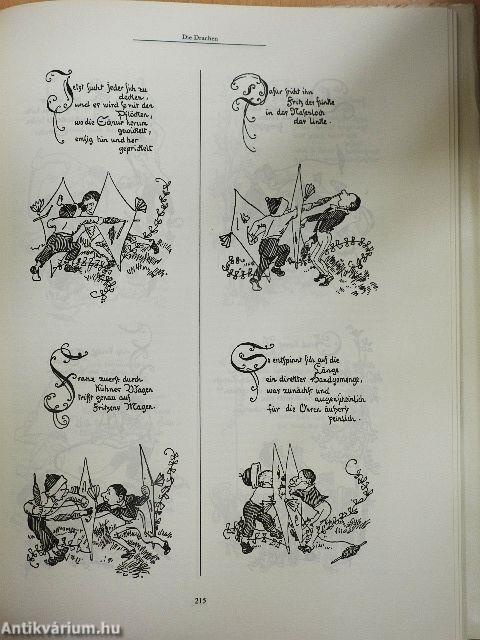 Die Drachen
Jetzt sucht jeder sich zu
decken,
und es wird so mit den
Pflöcken,
wo die Schnur herum
gewickelt,
emsig hin und her
geprickelt
Franz zuerst durch
kühnes Wagen
trifft genau auf
Fritzens Magen.
Dafür sticht ihn
Fritz der flinke
in das Nasenloch
das linke.
So entspinnt sich auf die
Länge
ein direktes Handgemenge,
was zunächst und
augenscheinlich
für die Ohren äußerst
peinlich.
215
Antikvárium.hu